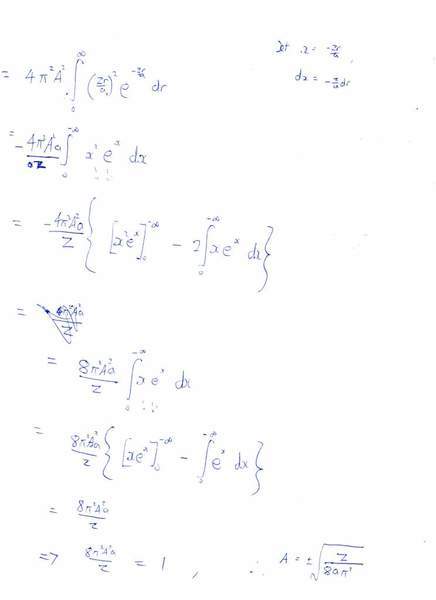 Let x = -Zr/a
dx = -Z/a dr
= 4π²A² ∫₀^∞ (Zr/a)² e^(-Zr/a) dr
= -4π²A²a/Z ∫₀^-∞ x² e^x dx
= -4π²A²a/Z { [x²e^x]₀^-∞ - 2∫₀^-∞ xe^x dx }
=
= 8π²A²a/Z ∫₀^-∞ x e^x dx
= 8π²A²a/Z { [xe^x]₀^-∞ - ∫₀^-∞ e^x dx }
= 8π²A²a/Z
=> 8π²A²a/Z = 1 , ∴ A = ±√(Z/8aπ²)